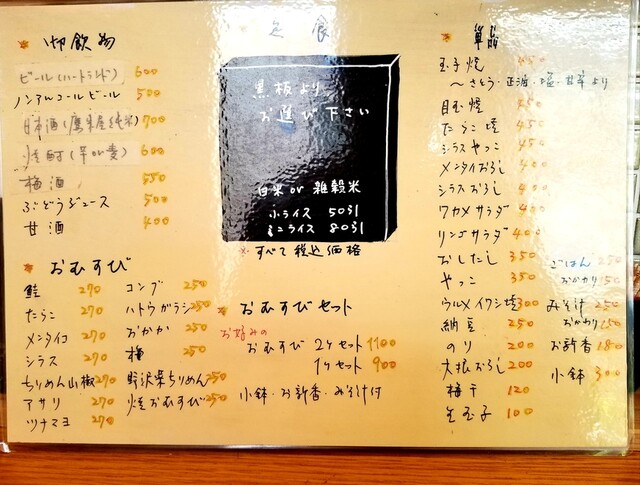 * 御飲物
ビール(ハートランド) 600
ノンアルコールビール 500
日本酒(鷹来屋純米) 700
焼酎(芋or麦) 600
梅酒 550
ぶどうジュース 500
甘酒 400
* おむすび
鮭 270
たらこ 270
メンタイコ 270
シラス 270
ちりめん山椒 270
アサリ 270
ツナマヨ 270
コンブ 250
ハトウガラシ 250
おかか 250
梅 250
野沢菜ちりめん 250
焼おむすび 250
定食
黒板より
お選び下さい
白米 or 雑穀米
小ライス 50引
ミニライス 80引
※すべて税込価格
* おむすびセット
お好みの
おむすび 2ケセット 1100
1ケセット 900
小鉢・お新香・みそ汁付
* 単品
玉子焼 450
〜さとう・正油・塩・甘辛より
目玉焼 350
たらこ焼 450
シラスやっこ 450
メンタイおろし 400
シラスおろし 400
ワカメサラダ 400
リンゴサラダ 400
おしたし 350
やっこ 350
ウルメイワシ焼 300
納豆 250
のり 200
大根おろし 200
梅干 120
生玉子 100
ごはん 250
おかわり 150
みそ汁 250
おかわり 150
お新香 180
小鉢 300